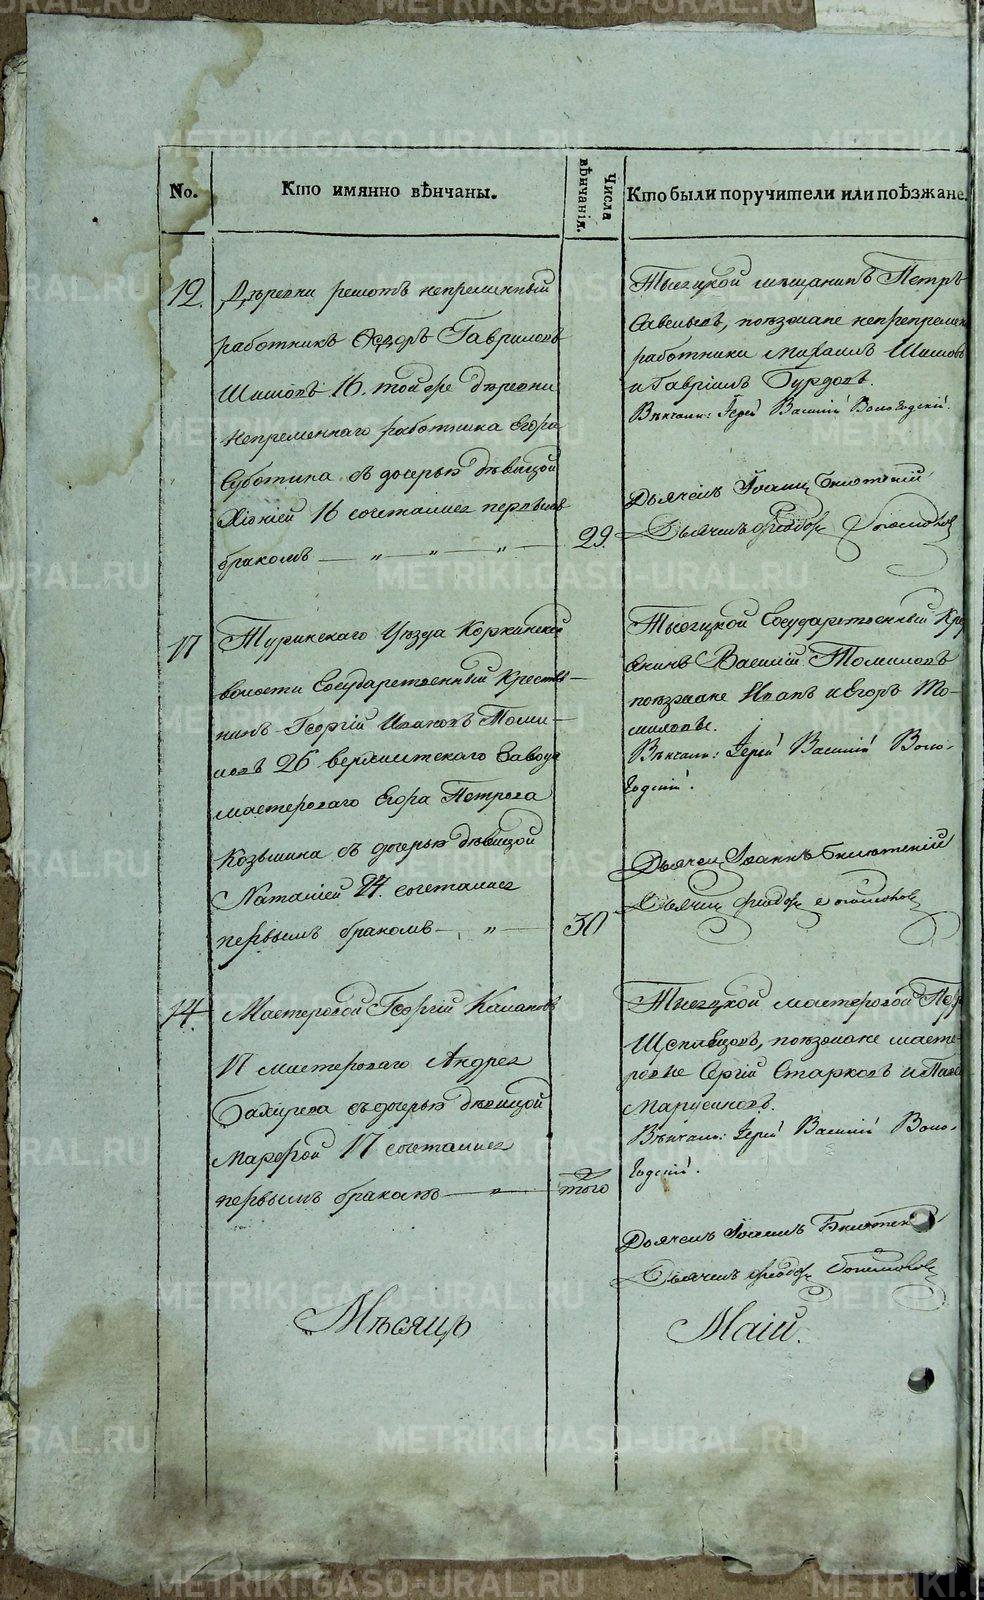 No.
Кто имянно вѣнчаны.
Числа вѣнчанія.
Кто были поручители или поѣзжане.
12.
Деревни решотъ непременный
работникъ Ѳедоръ Гавриловъ
Шишовъ 16. той же деревни
непременнаго работника Егора
Суботина съ дочерью дѣвицой
Хіоніей 16 сочетались первымъ
бракомъ — „ — „ — „ —
29.
Тысяцкой мѣщанинъ Петръ
Савельевъ, поѣзжане
работники Михаилъ Шишовъ
и Гавріилъ Бурдовъ.
Вѣнчалъ: Іерей Василій Вологодскій.
Дьячекъ Іоаннъ
Дьячекъ Феодоръ
13
Туринскаго Уѣзда Коркинской
волости Государственный Крестья–
нинъ Георгій Ивановъ Томи–
ловъ 26 верхъисетскаго Завода
мастероваго Егора Петрова
Козьмина съ дочерью дѣвицой
Наталіей 24. сочетались
первымъ бракомъ — „ —
30
Тысяцкой Государственный Кре
янинъ Василій Томиловъ
поѣзжане Иванъ и Егоръ То–
миловы.
Вѣнчалъ: Іерей Василій Воло–
годскій.
Дьячекъ Іоаннъ
Дьячекъ Феодоръ
14.
Мастеровой Георгій
17 мастероваго Андрея
Бахирева съ дочерью дѣвицой
Марфой 17 сочетались
первымъ бракомъ — „ —
того
Тысяцкой мастеровой
Щепавцовъ, поѣзжане масте–
ровые Сергій Старковъ и
Вѣнчалъ: Іерей Василій Воло–
годскій.
Дьячекъ Іоаннъ
Дьячекъ Феодоръ
Мѣсяцъ
Маій.
METRIKI.GASO-URAL.RU